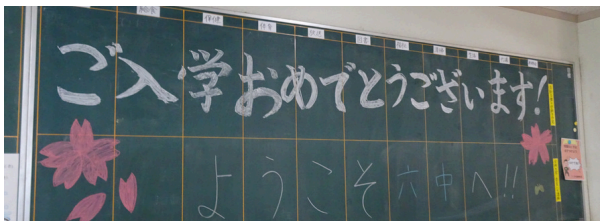 ご入学おめでとうございます!
ようこそ六中へ!!